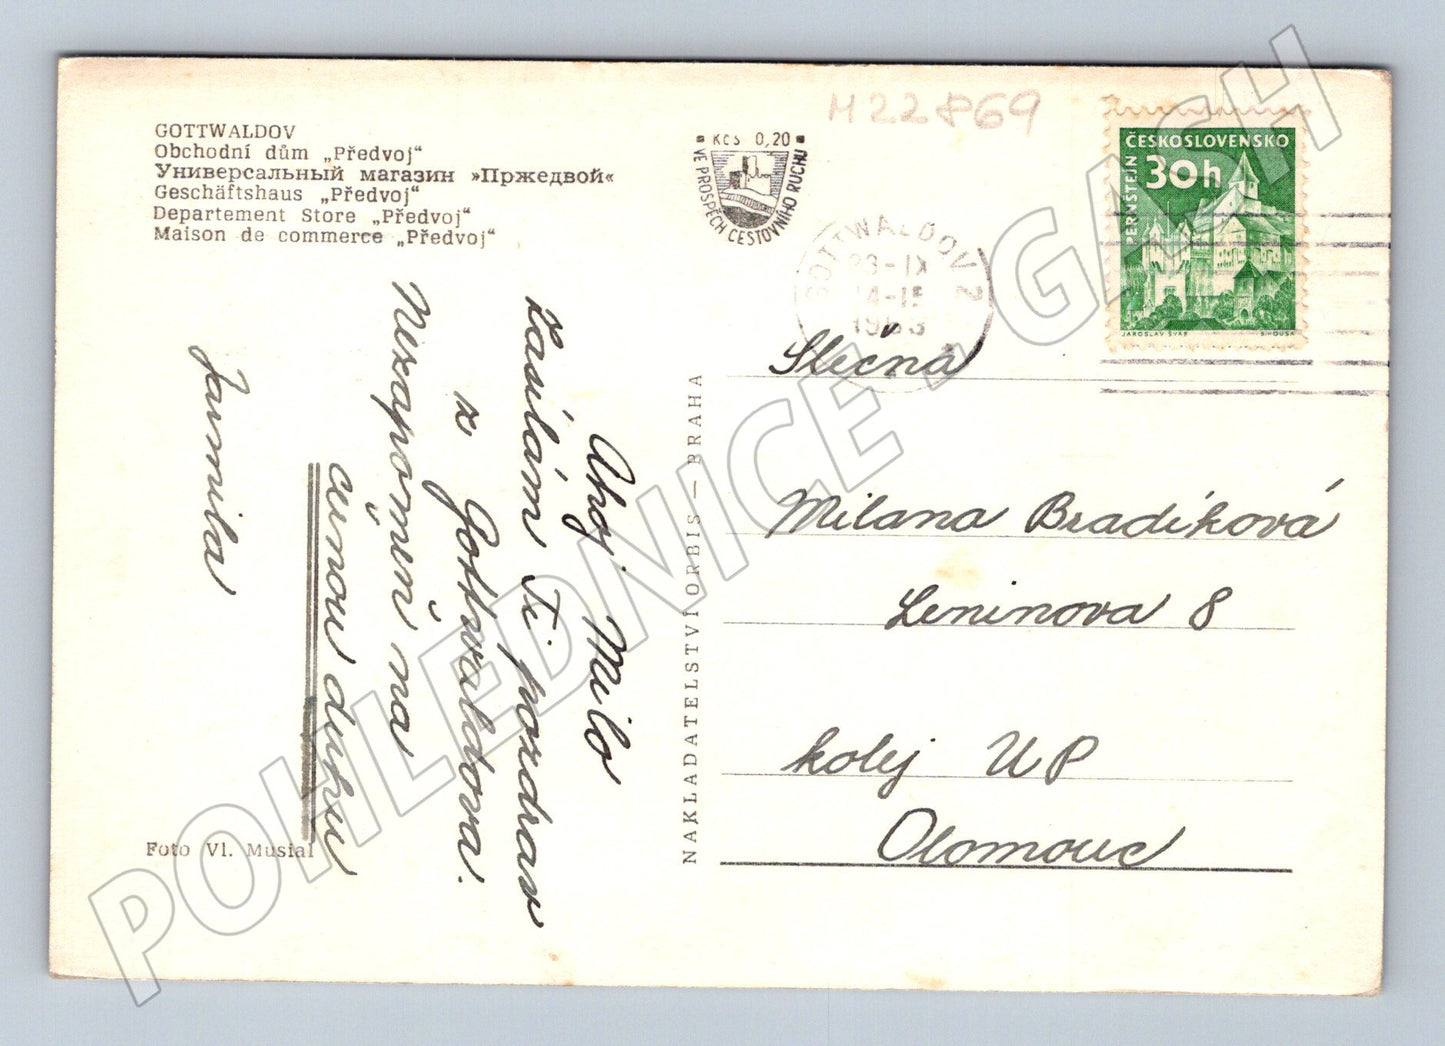 GOTTWALDOV
Obchodní dům „Předvoj"
Универсальный магазин »Пржедвой«
Geschäftshaus „Předvoj"
Departement Store „Předvoj"
Maison de commerce „Předvoj"
M22869
Kčs 0,20
VE PROSPĚCH CESTOVNÍHO RUCHU
GOTTWALDOV 2
23-IX
1963
ČESKOSLOVENSKO
30h
PERNŠTEJN
JAROSLAV ŠVÁB
Ahoj Milo
Zasílám Ti pozdrav
z Gottwaldova.
Nezapomeň na
Jarmila
Foto Vl. Musial
NAKLADATELSTVÍ ORBIS — PRAHA
Slečna
Milana Bradíková
Leninova 8
kolej UP
Olomouc
POHLEDNICE . GASH